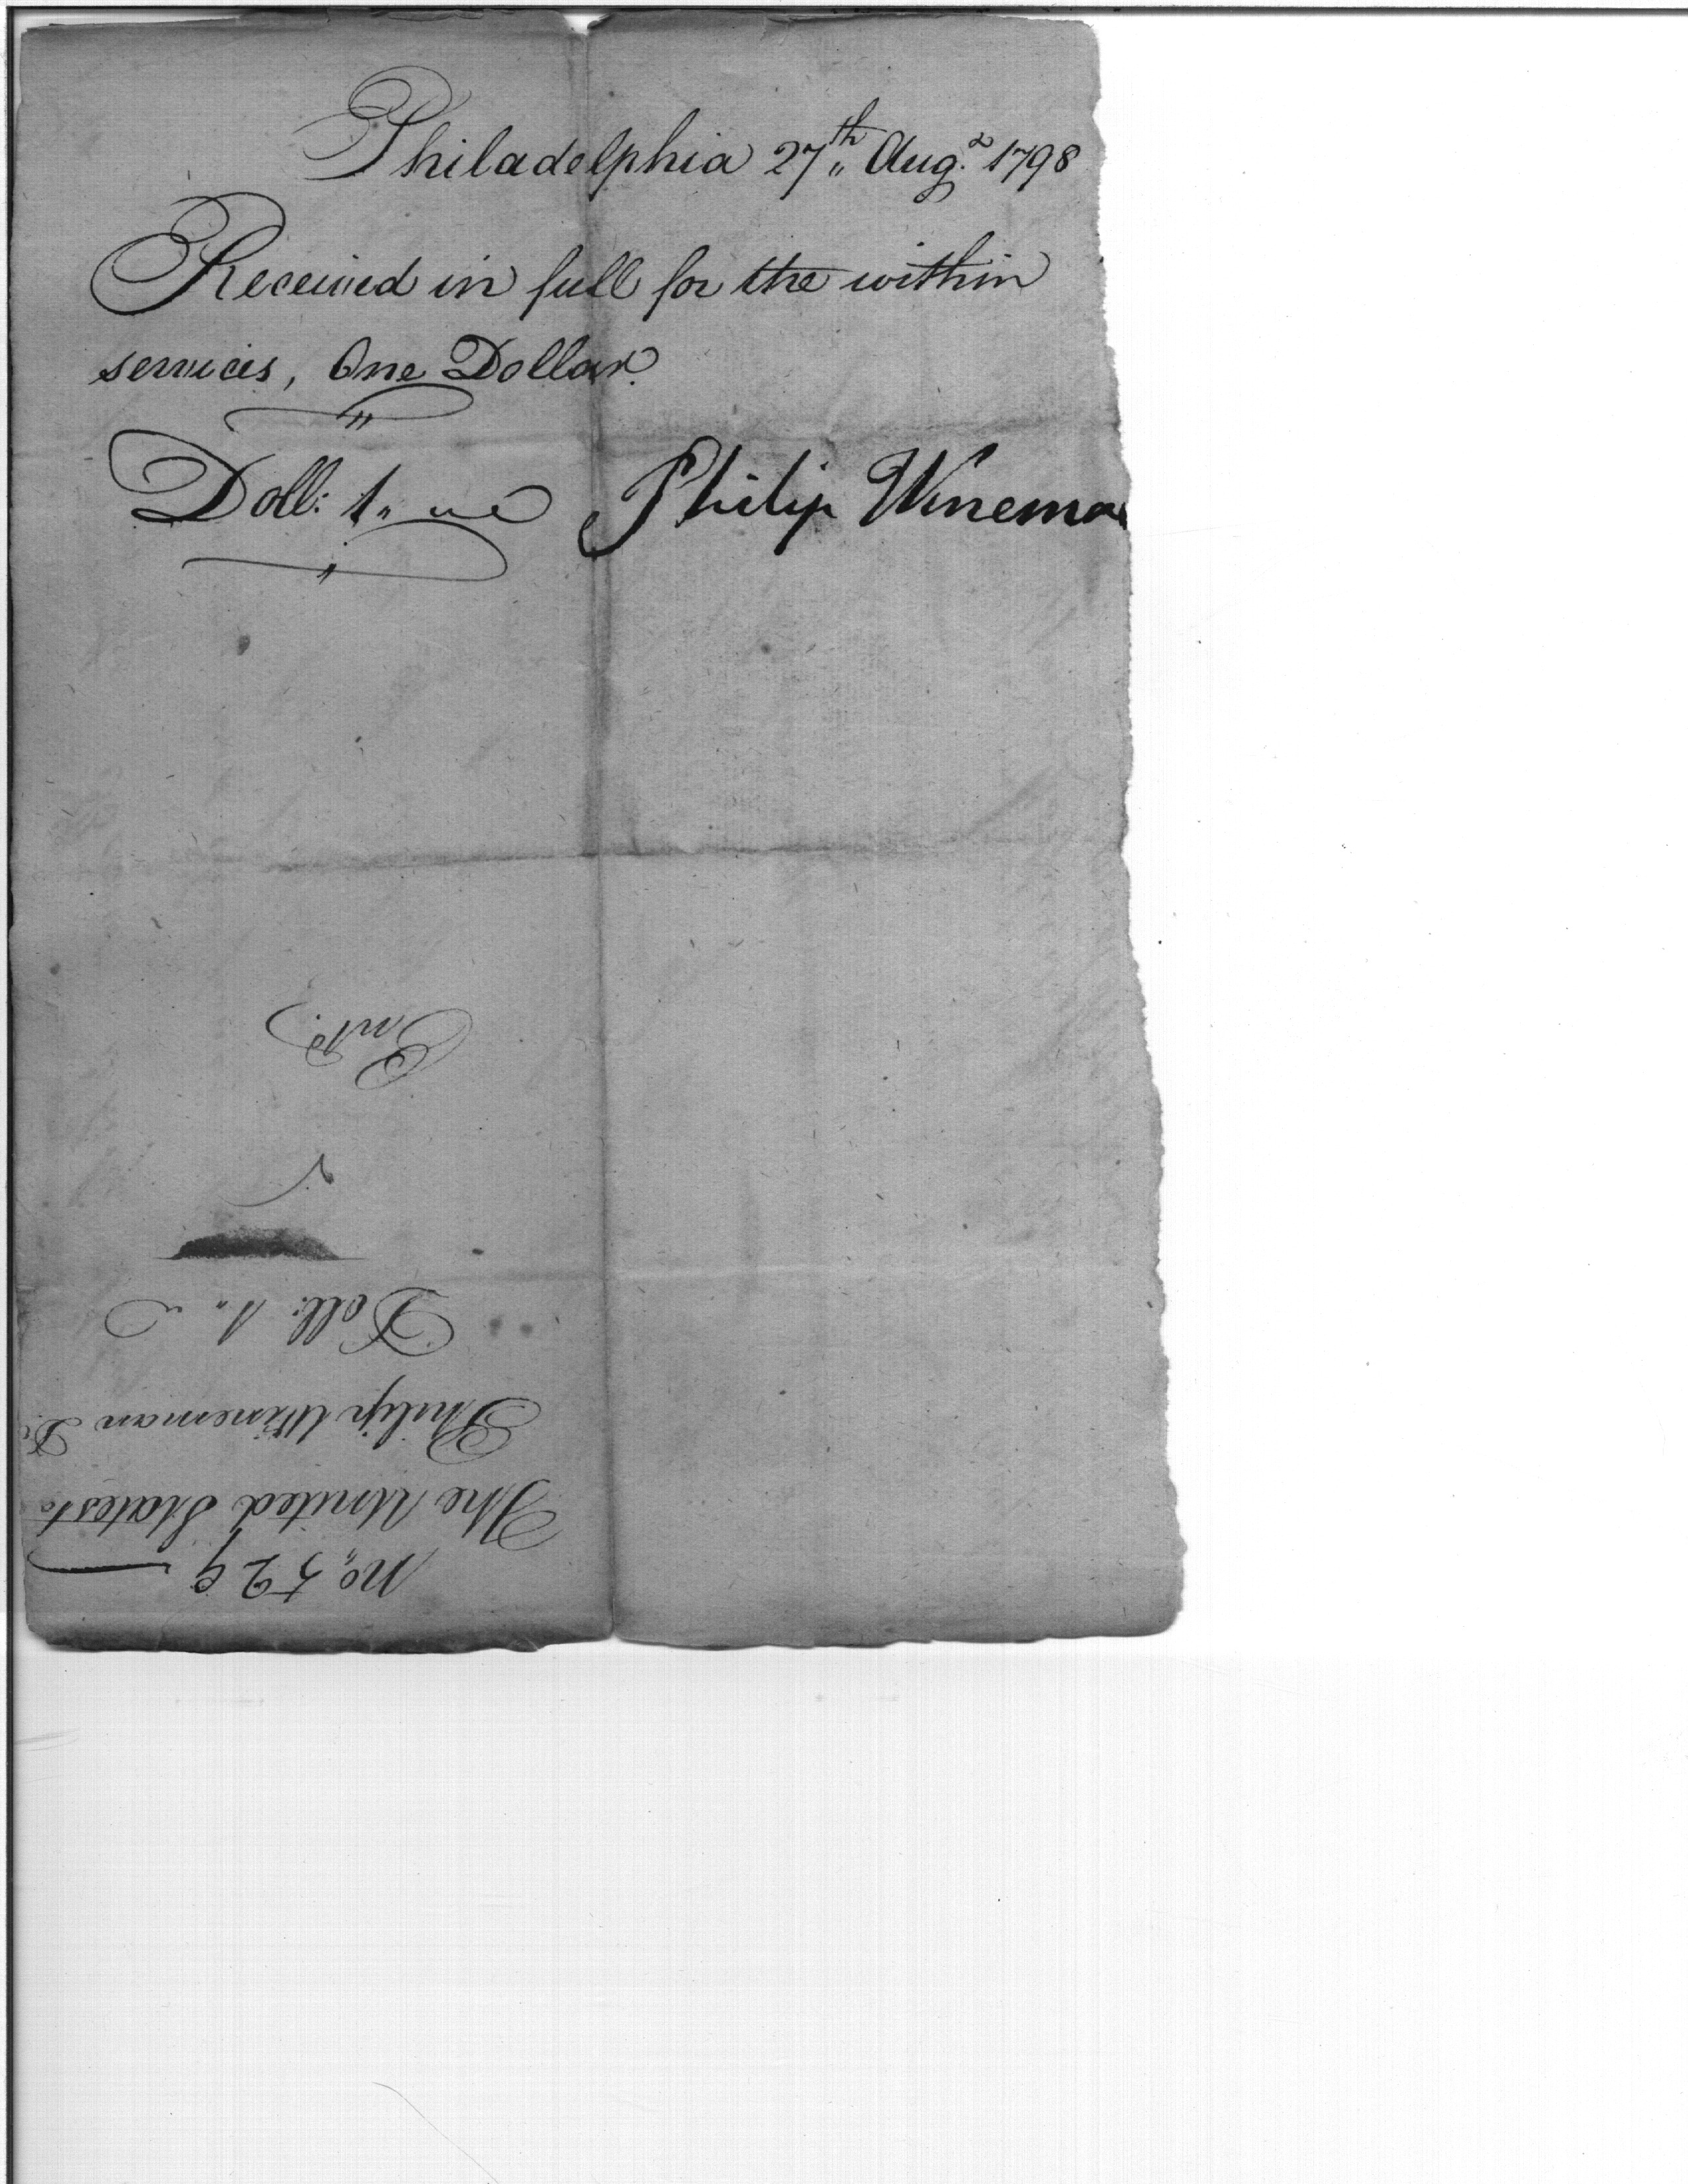 Philadelphia 27th Augt. 1798
Received in full for the within
services, One Dollar.
Doll: 1,, Philip Wineman
No. 529
The United States to
Philip Wineman Dr.
Doll: 1,,
Entd.